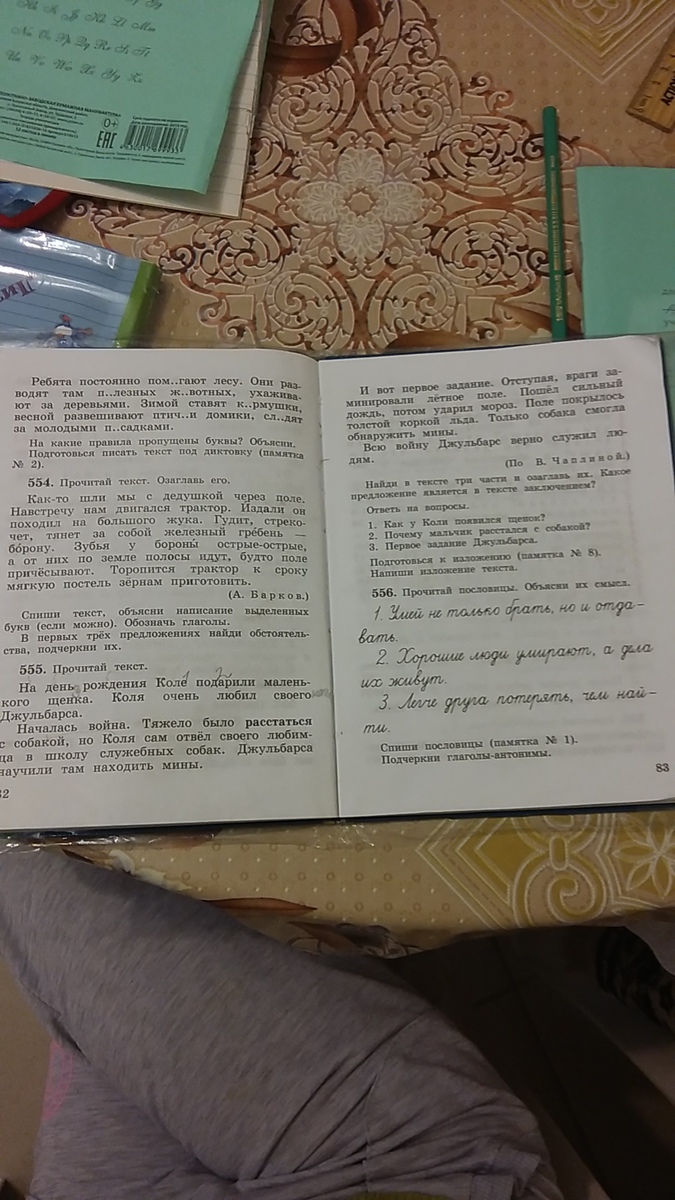 0+
EAC
Ребята постоянно пом..гают лесу. Они раз-
водят там п..лезных ж..вотных, ухажива-
ют за деревьями. Зимой ставят к..рмушки,
весной развешивают птич..и домики, сл..дят
за молодыми п..садками.
На какие правила пропущены буквы? Объясни.
Подготовься писать текст под диктовку (памятка
№ 2).
554. Прочитай текст. Озаглавь его.
Как-то шли мы с дедушкой через поле.
Навстречу нам двигался трактор. Издали он
походил на большого жука. Гудит, стреко-
чет, тянет за собой железный гребень —
борону. Зубья у бороны острые-острые,
а от них по земле полосы идут, будто поле
причёсывают. Торопится трактор к сроку
мягкую постель зёрнам приготовить.
(А. Барков.)
Спиши текст, объясни написание выделенных
букв (если можно). Обозначь глаголы.
В первых трёх предложениях найди обстоятель-
ства, подчеркни их.
555. Прочитай текст.
На день рождения Коле подарили малень-
кого щенка. Коля очень любил своего
Джульбарса.
Началась война. Тяжело было расстаться
с собакой, но Коля сам отвёл своего любим-
ца в школу служебных собак. Джульбарса
научили там находить мины.
И вот первое задание. Отступая, враги за-
минировали лётное поле. Пошёл сильный
дождь, потом ударил мороз. Поле покрылось
толстой коркой льда. Только собака смогла
обнаружить мины.
Всю войну Джульбарс верно служил лю-
дям.
(По В. Чаплиной.)
Найди в тексте три части и озаглавь их. Какое
предложение является в тексте заключением?
Ответь на вопросы.
1. Как у Коли появился щенок?
2. Почему мальчик расстался с собакой?
3. Первое задание Джульбарса.
Подготовься к изложению (памятка № 8).
Напиши изложение текста.
556. Прочитай пословицы. Объясни их смысл.
1. Умей не только брать, но и отда-
вать.
2. Хорошие люди умирают, а дела
их живут.
3. Легче друга потерять, чем най-
ти.
Спиши пословицы (памятка № 1).
Подчеркни глаголы-антонимы.
83